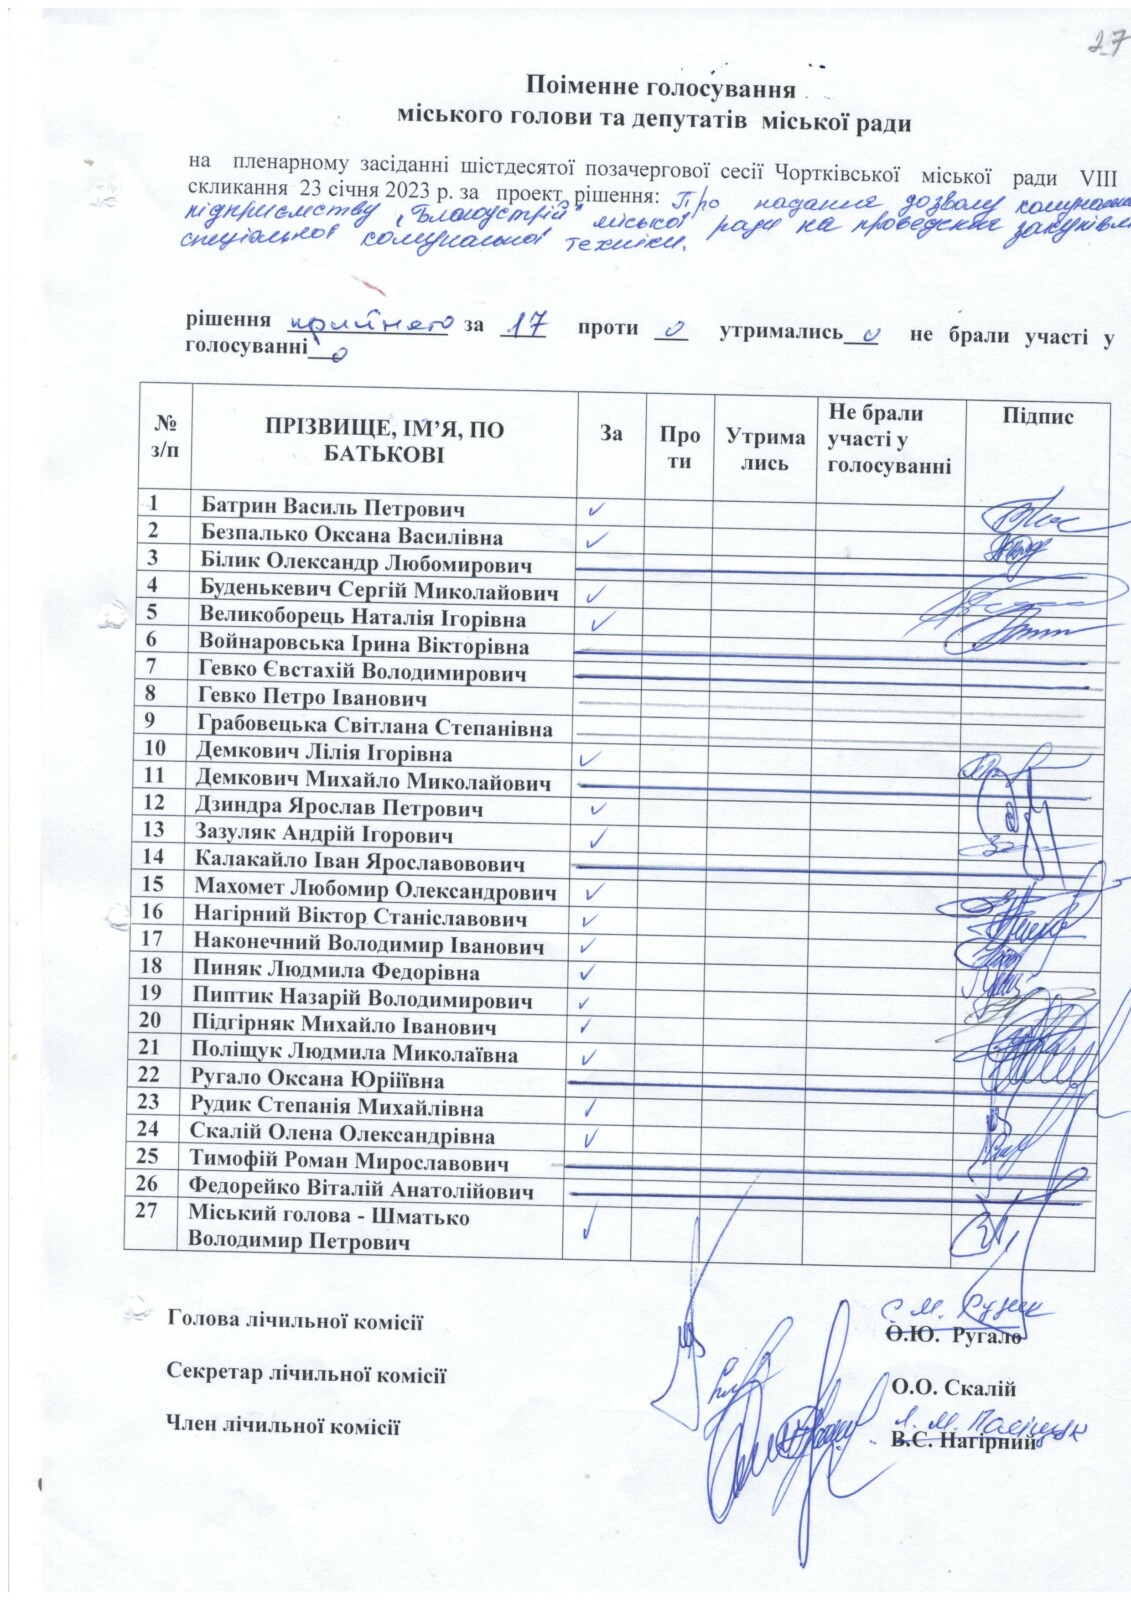 27
Поіменне голосування
міського голови та депутатів міської ради
на пленарному засіданні шістдесятої позачергової сесії Чортківської міської ради VIII
скликання 23 січня 2023 р. за проект рішення: Про надання дозволу комунальному
підприємству „Благоустрій" міської ради на проведення закупівлі
спеціальної комунальної техніки.
рішення прийнято за 17 проти 0 утримались 0 не брали участі у
голосуванні 0
№ з/п ПРІЗВИЩЕ, ІМ’Я, ПО БАТЬКОВІ За Про ти Утрима лись Не брали участі у голосуванні Підпис
1 Батрин Василь Петрович ✓
2 Безпалько Оксана Василівна ✓
3 Білик Олександр Любомирович
4 Буденькевич Сергій Миколайович ✓
5 Великоборець Наталія Ігорівна ✓
6 Войнаровська Ірина Вікторівна
7 Гевко Євстахій Володимирович
8 Гевко Петро Іванович
9 Грабовецька Світлана Степанівна
10 Демкович Лілія Ігорівна ✓
11 Демкович Михайло Миколайович
12 Дзиндра Ярослав Петрович ✓
13 Зазуляк Андрій Ігорович ✓
14 Калакайло Іван Ярославовович
15 Махомет Любомир Олександрович ✓
16 Нагірний Віктор Станіславович ✓
17 Наконечний Володимир Іванович ✓
18 Пиняк Людмила Федорівна ✓
19 Пиптик Назарій Володимирович ✓
20 Підгірняк Михайло Іванович ✓
21 Поліщук Людмила Миколаївна ✓
22 Ругало Оксана Юріїївна
23 Рудик Степанія Михайлівна ✓
24 Скалій Олена Олександрівна ✓
25 Тимофій Роман Мирославович
26 Федорейко Віталій Анатолійович
27 Міський голова - Шматько
Володимир Петрович ✓
С. М. Рудик
Голова лічильної комісії О.Ю. Ругало
Секретар лічильної комісії О.О. Скалій
Л. М. Поліщук
Член лічильної комісії В.С. Нагірний